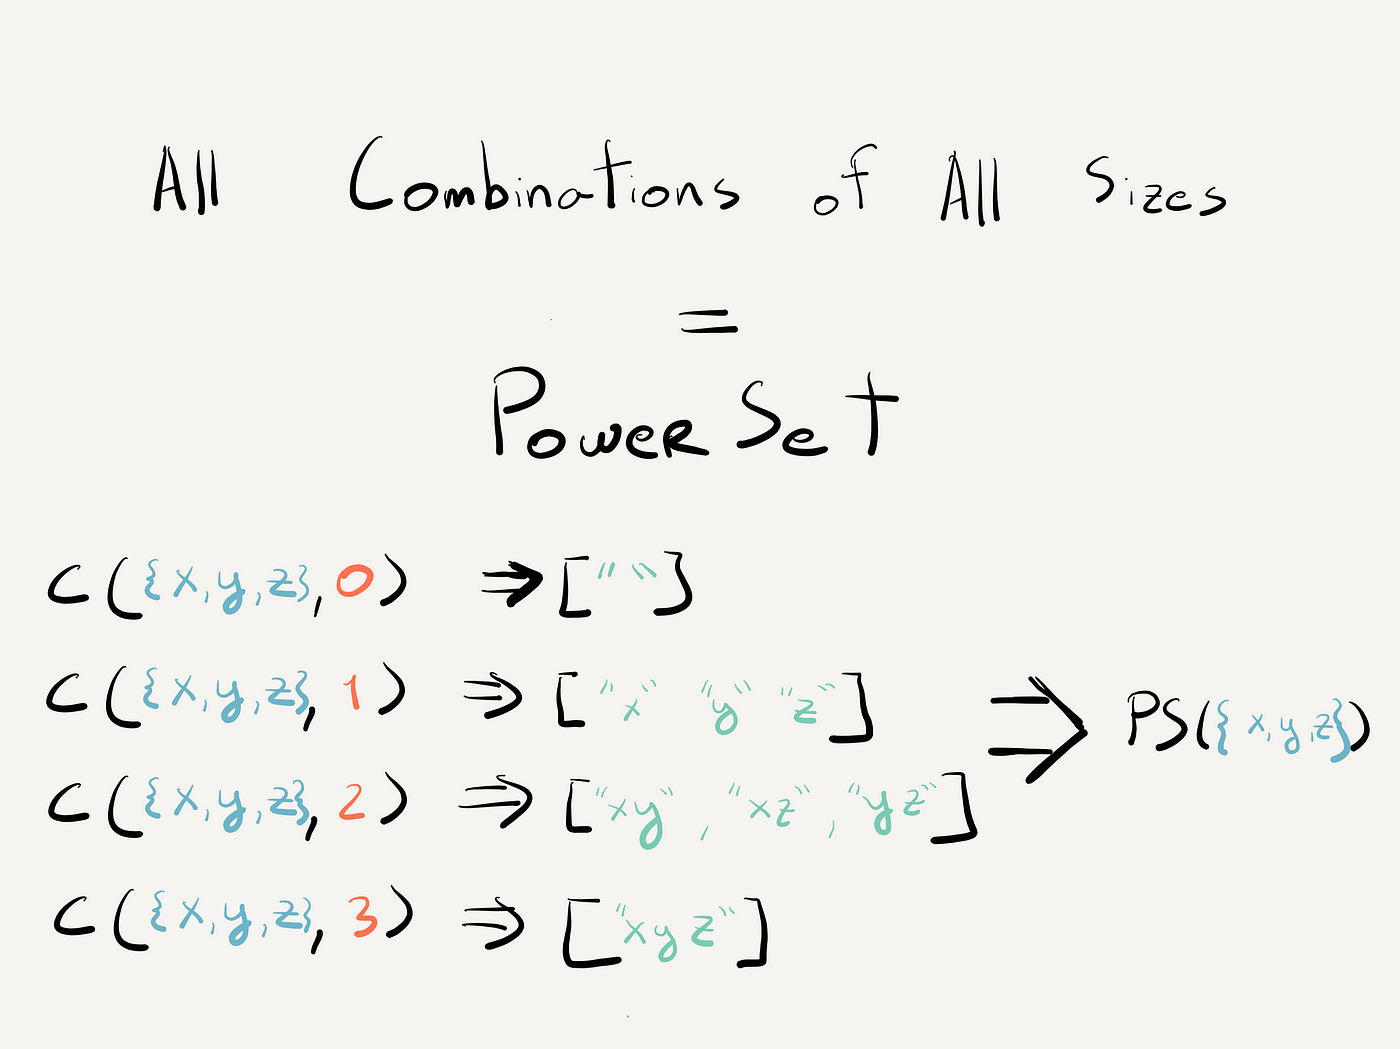 All Combinations of All Sizes
=
Power Set
C({x,y,z},0) ⇒ [""]
C({x,y,z},1) ⇒ ["x" "y" "z"]
⇒ PS({x,y,z})
C({x,y,z},2) ⇒ ["xy", "xz", "yz"]
C({x,y,z},3) ⇒ ["xyz"]